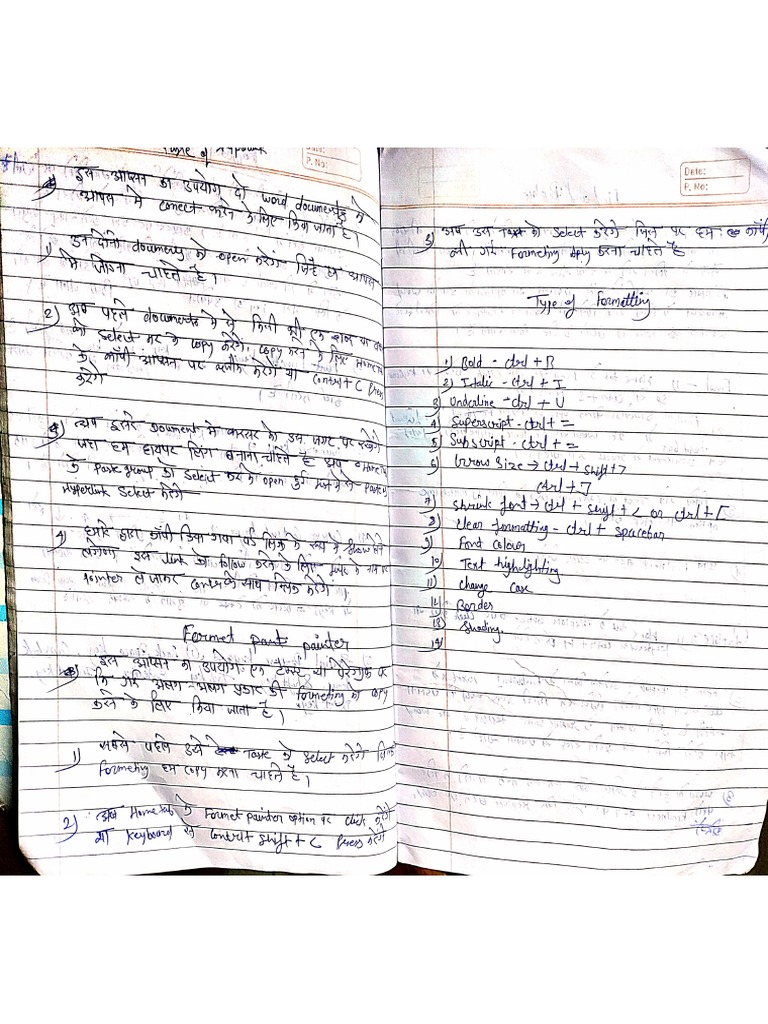 Type of
Date:
P. No:
इस आप्सन का उपयोग दो word documents को
आपस मे conect करने के लिए किया जाता है।
1) उन दोनो documents को open करेंगे जिन्हे हम आपस
मे जोडना चाहते है।
2) अब पहले documents मे से किसी भी एक शब्द या
को select कर के copy करेंगे, copy करने के लिए Home
के कॉपी आप्सन पर क्लीक करेंगे या Control + C Press
करेंगे
3) अब दुसरे Document मे करसर को उस जगह पर रखेंगे
जहा हम हायपर लिंक बनाना चाहते है अब Home
के Paste group को select करके open हुई list मे से Paste
Hyperlink select करेंगे
4) हमारे द्वारा कॉपी किया गया वर्ड लिंक के रूप मे show होने
लगेगा इस link को follow करने के लिए link के
pointer ले जाकर Control के साथ क्लिक करेंगे
Formet paint painter
इस आप्सन का उपयोग एक टेक्स्ट या पेरेग्राफ पर
कि गई अलग-अलग प्रकार की formeting को copy
करने के लिए किया जाता है।
1) सबसे पहले उस Taste को select करेंगे
formeting हम copy करना चाहते है।
2) अब Home tab के Formet painter option पर click करेंगे
या Keyboard से Control shift + C Press करेंगे
Date:
P. No:
3) अब उस Text को select करेंगे जिस पर हम कॉपी
की गई Formeting apply करना चाहते है
Type of Formatting
1) Bold - ctrl + B
2) Italic - ctrl + I
3) Underline - ctrl + U
4) Superscript - ctrl + =
5) Subscript - ctrl + =
6) Grow Size → ctrl + shift + >
ctrl + ]
7) Shrink font → ctrl + shift + < or ctrl + [
8) clear formatting - ctrl + spacebar
9) Font colour
10) Text highlighting
11) change case
12) Border
13) Shading
14)